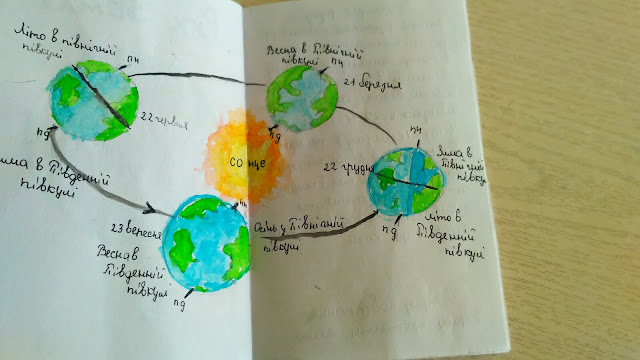 Літо в північній
півкулі
ПН
22 червня
ПД
Зима в Південній
півкулі
Весна в Північній
півкулі
ПН
21 березня
ПД
СОНЦЕ
ПН
22 грудня
Зима в
Північній
півкулі
ПД
Літо в
Південній
півкулі
ПН
23 вересня
Осінь у Північній
півкулі
Весна в
Південній
півкулі
ПД